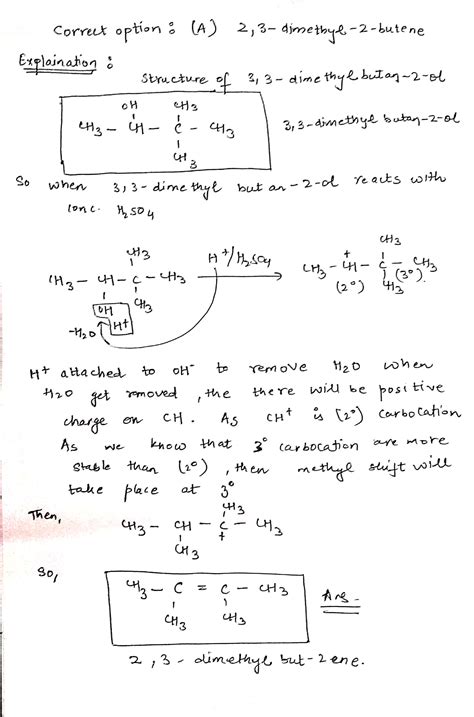 Correct option : (A) 2,3-dimethyl-2-butene
Explaination :
Structure of 3,3-dimethylbutan-2-ol
OH CH3
CH3 - CH - C - CH3
CH3
3,3-dimethyl butan-2-ol
So when 3,3-dimethyl butan-2-ol reacts with
conc. H2SO4
CH3
CH3 - CH - C - CH3
OH CH3
-H2O H+
H+/H2SO4
CH3
+
CH3 - CH - C - CH3
(2°) CH3 (3°)
H+ attached to OH- to remove H2O when
H2O get removed, the there will be positive
charge on CH. As CH+ is (2°) carbocation
As we know that 3° carbocation are more
stable than (2°), then methyl shift will
take place at 3°
Then,
CH3
CH3 - CH - C - CH3
CH3 +
So,
CH3 - C = C - CH3
CH3 CH3
Ans -
2,3-dimethyl but-2 ene.